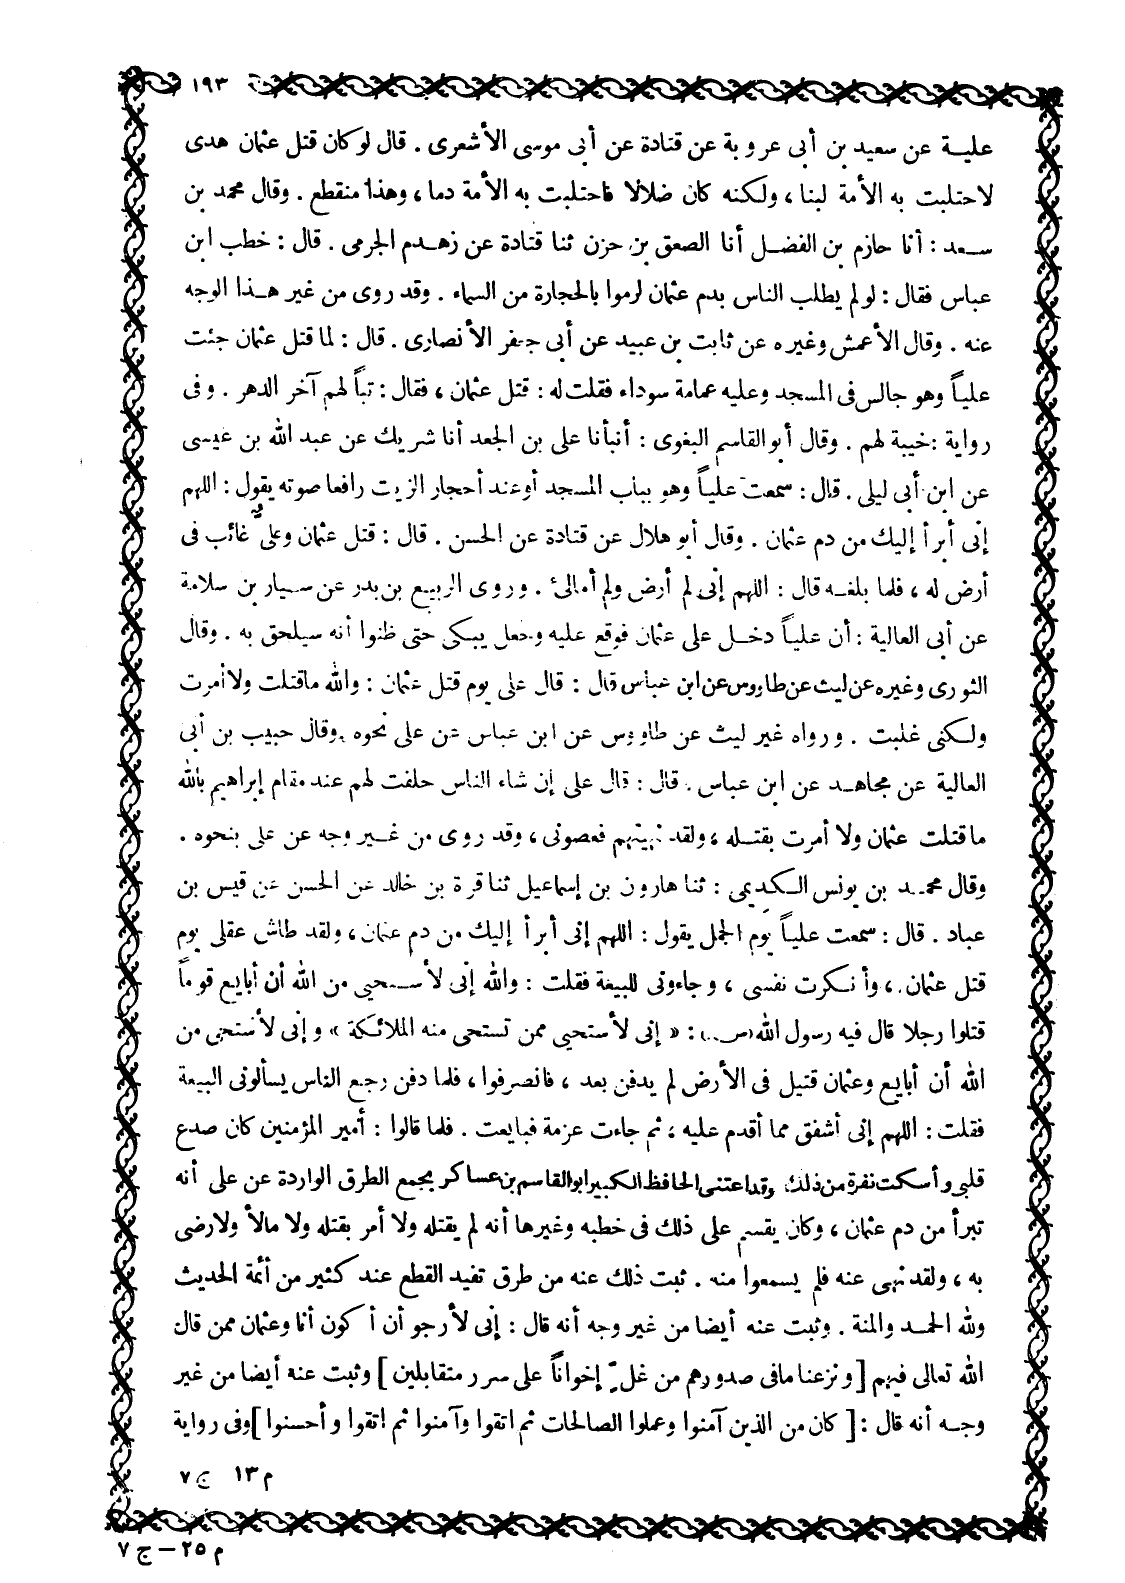 ١٩٣
عليـة عن سعيد بن أبى عروبة عن قتادة عن أبى موسى الأشعرى . قال لو كان قتل عثمان هدى
لاحتلبت به الأمة لبنا ، ولكنه كان ضلالا فاحتلبت به الأمة دما ، وهذا منقطع . وقال محمد بن
سـعد : أنا حازم بن الفضـل أنا الصعق بن حزن ثنا قتادة عن زهـدم الجرمى . قال : خطب ابن
عباس فقال : لو لم يطلب الناس بدم عثمان لرموا بالحجارة من السماء . وقد روى من غير هـذا الوجه
عنه . وقال الأعمش وغيره عن ثابت بن عبيد عن أبى جعفر الأنصارى . قال : لما قتل عثمان جئت
علياً وهو جالس فى المسجد وعليه عمامة سوداء فقلت له : قتل عثمان ، فقال : تباً لهم آخر الدهر . وفى
رواية : خيبة لهم . وقال أبو القاسم البغوى : أنبأنا على بن الجعد أنا شريك عن عبد الله بن عيسى
عن ابن أبى ليلى . قال : سمعت علياً وهو بباب المسجد أو عند أحجار الزيت رافعا صوته يقول : اللهم
إنى أبرأ إليك من دم عثمان . وقال أبو هلال عن قتادة عن الحسن . قال : قتل عثمان وعلىٌّ غائب فى
أرض له ، فلما بلغـه قال : اللهم إنى لم أرض ولم أمالئ . وروى الربيع بن بدر عن سـيار بن سلامة
عن أبى العالية : أن علياً دخـل على عثمان فوقع عليه وجعل يبكى حتى ظنوا أنه سيلحق به . وقال
الثورى وغيره عن ليث عن طاووس عن ابن عباس قال : قال على يوم قتل عثمان : والله ماقتلت ولا أمرت
ولـكنى غلبت . ورواه غير ليث عن طاووس عن ابن عباس عن على نحوه . وقال حبيب بن أبى
العالية عن مجاهـد عن ابن عباس . قال : قال على إن شاء الناس حلفت لهم عند مقام إبراهيم بالله
ماقتلت عثمان ولا أمرت بقتـله ، ولقد نهيتهم فعصونى ، وقد روى من غـير وجه عن على بنحوه .
وقال محمـد بن يونس الـكديمى : ثنا هارون بن إسماعيل ثنا قرة بن خالد عن الحسن عن قيس بن
عباد . قال : سمعت علياً يوم الجمل يقول : اللهم إنى أبرأ إليك من دم عثمان ، ولقد طاش عقلى يوم
قتل عثمان ، وأنـكرت نفسى ، وجاءونى للبيعة فقلت : والله إنى لأسـتحيى من الله أن أبايع قوماً
قتلوا رجلا قال فيه رسول الله (س..) : « إنى لأستحيى ممن تستحى منه الملائكة » وإنى لأستحى من
الله أن أبايع وعثمان قتيل فى الأرض لم يدفن بعد ، فانصرفوا ، فلما دفن رجع الناس يسألونى البيعة
فقلت : اللهم إنى أشفق مما أقدم عليه ، ثم جاءت عزمة فبايعت . فلما قالوا : أمير المؤمنين كان صدع
قلبى وأسكت نفرة من ذلك . وقد اعتنى الحافظ الكبير ابو القاسم بن عساكر بجمع الطرق الواردة عن على أنه
تبرأ من دم عثمان ، وكان يقسم على ذلك فى خطبه وغيرها أنه لم يقتله ولا أمر بقتله ولا مالأ ولا رضى
به ، ولقد نهى عنه فلم يسمعوا منه . ثبت ذلك عنه من طرق تفيد القطع عند كثير من أئمة الحديث
ولله الحمـد والمنة . وثبت عنه أيضا من غير وجه أنه قال : إنى لأرجو أن أكون أنا وعثمان ممن قال
الله تعالى فيهم [ ونزعنا مافى صدورهم من غلٍّ إخواناً على سرر متقابلين ] وثبت عنه أيضا من غير
وجـه أنه قال : [ كان من الذين آمنوا وعملوا الصالحات ثم اتقوا وآمنوا ثم اتقوا وأحسنوا ] وفى رواية
م ١٣ ج ٧
م ٢٥ – ج ٧